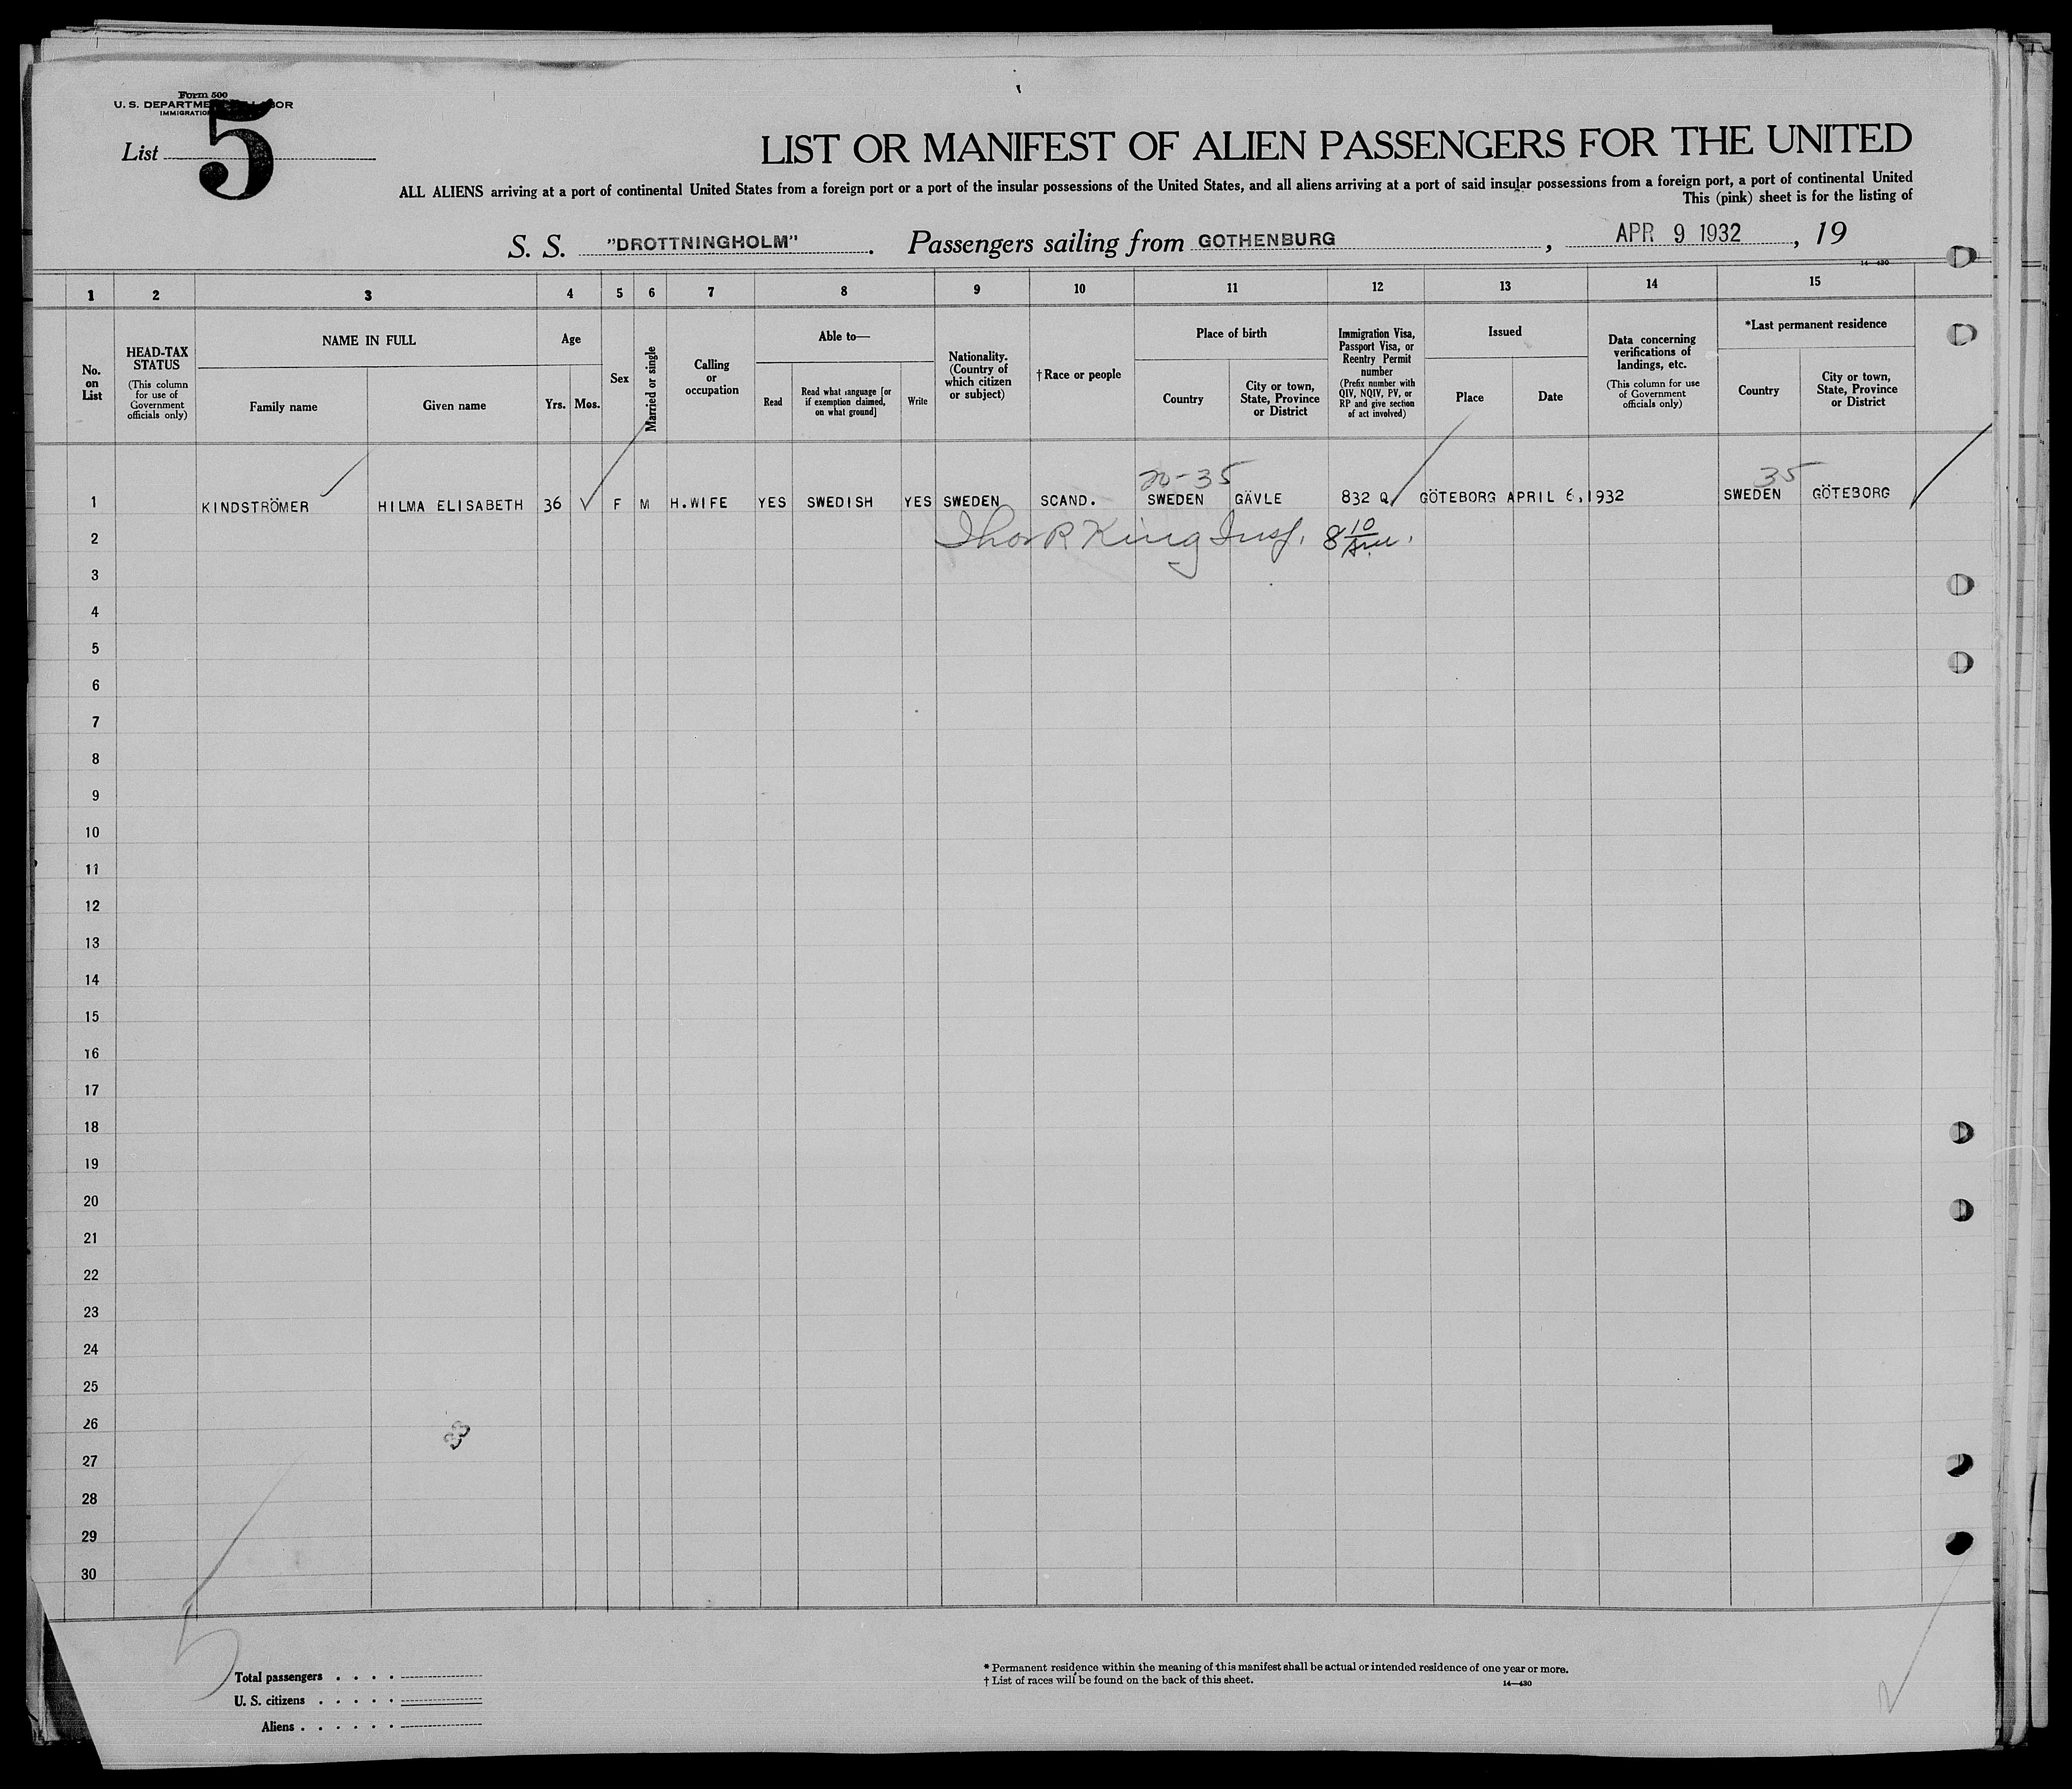 Form 500
U. S. DEPARTME BOR
IMMIGRATIO
List 5
LIST OR MANIFEST OF ALIEN PASSENGERS FOR THE UNITED
ALL ALIENS arriving at a port of continental United States from a foreign port or a port of the insular possessions of the United States, and all aliens arriving at a port of said insular possessions from a foreign port, a port of continental United
This (pink) sheet is for the listing of
S. S. "DROTTNINGHOLM". Passengers sailing from GOTHENBURG, APR 9 1932, 19
14—430
1 2 3 4 5 6 7 8 9 10 11 12 13 14 15
No. on List
HEAD-TAX STATUS
(This column for use of Government officials only)
NAME IN FULL
Family name
Given name
Age
Yrs. Mos.
Sex
Married or single
Calling or occupation
Able to—
Read
Read what language [or if exemption claimed, on what ground]
Write
Nationality. (Country of which citizen or subject)
†Race or people
Place of birth
Country
City or town, State, Province or District
Immigration Visa, Passport Visa, or Reentry Permit number
(Prefix number with QIV, NQIV, PV, or RP and give section of act involved)
Issued
Place
Date
Data concerning verifications of landings, etc.
(This column for use of Government officials only)
*Last permanent residence
Country
City or town, State, Province or District
20-35 35
1 KINDSTRÖMER HILMA ELISABETH 36 F M H.WIFE YES SWEDISH YES SWEDEN SCAND. SWEDEN GÄVLE 832 Q GÖTEBORG APRIL 6,1932 SWEDEN GÖTEBORG
2 Thos R King Insp. 8 10
3
4
5
6
7
8
9
10
11
12
13
14
15
16
17
18
19
20
21
22
23
24
25
26
27
28
29
30
5
Total passengers . . . .
U. S. citizens . . . . .
Aliens . . . . . .
* Permanent residence within the meaning of this manifest shall be actual or intended residence of one year or more.
† List of races will be found on the back of this sheet.
14—430